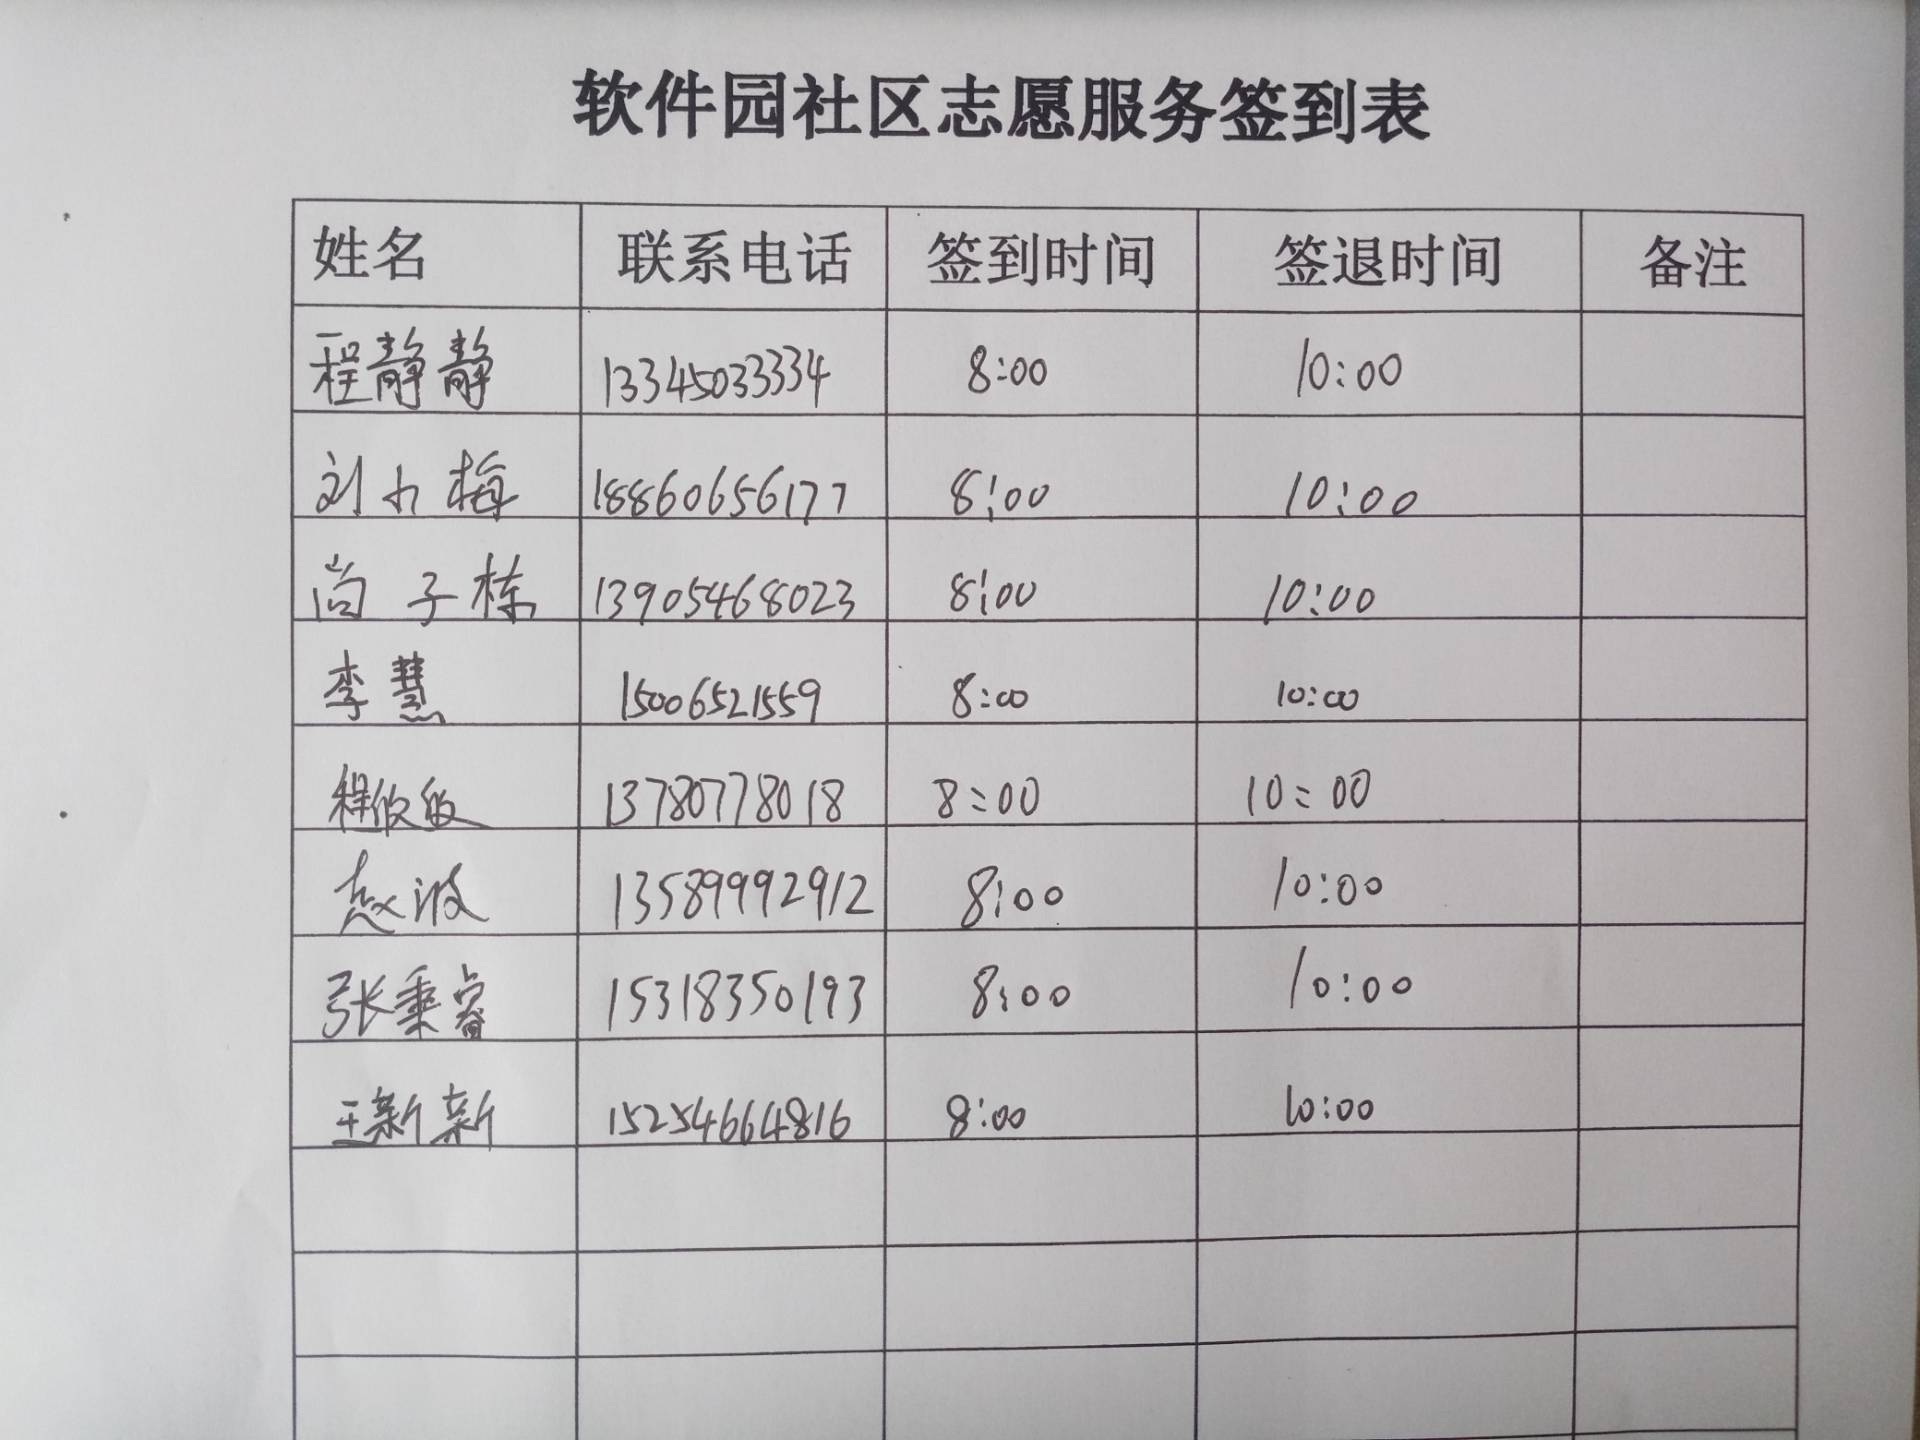 软件园社区志愿服务签到表
姓名 联系电话 签到时间 签退时间 备注
程静静 13345033334 8:00 10:00
刘小梅 18860656177 8:00 10:00
尚子栋 13905468023 8:00 10:00
李慧 15006521559 8:00 10:00
程 13780778018 8:00 10:00
赵波 13589992912 8:00 10:00
张秉睿 15318350193 8:00 10:00
王新新 15254664816 8:00 10:00